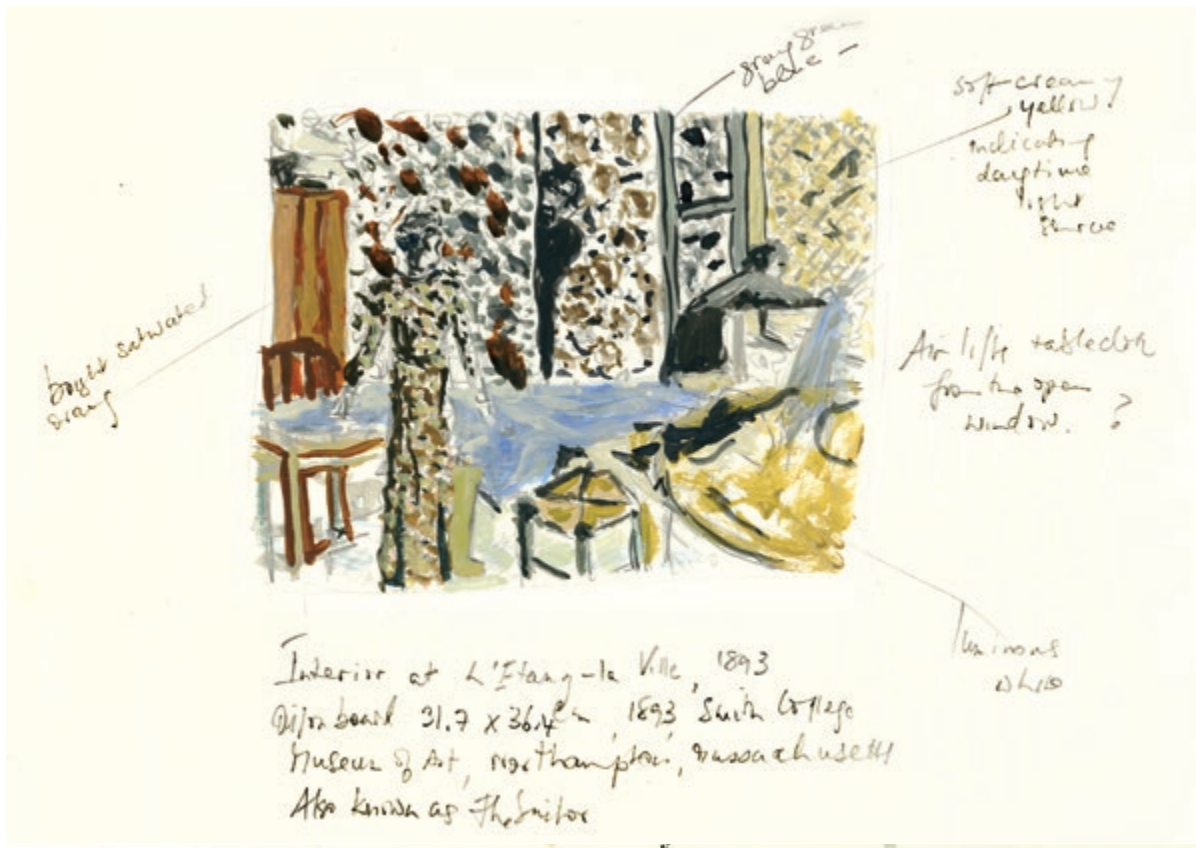 gray green
blue —
soft creamy
yellow
indicating
daytime
light
source
bright saturated
orang
Air lifts tablecloth
from the open
window. ?
luminous
white
Interior at L'Etang-la Ville, 1893
Oil on board 31.7 x 36.4 cm, 1893, Smith College
Museum of Art, Northampton, Massachusetts
Also known as The Suitor